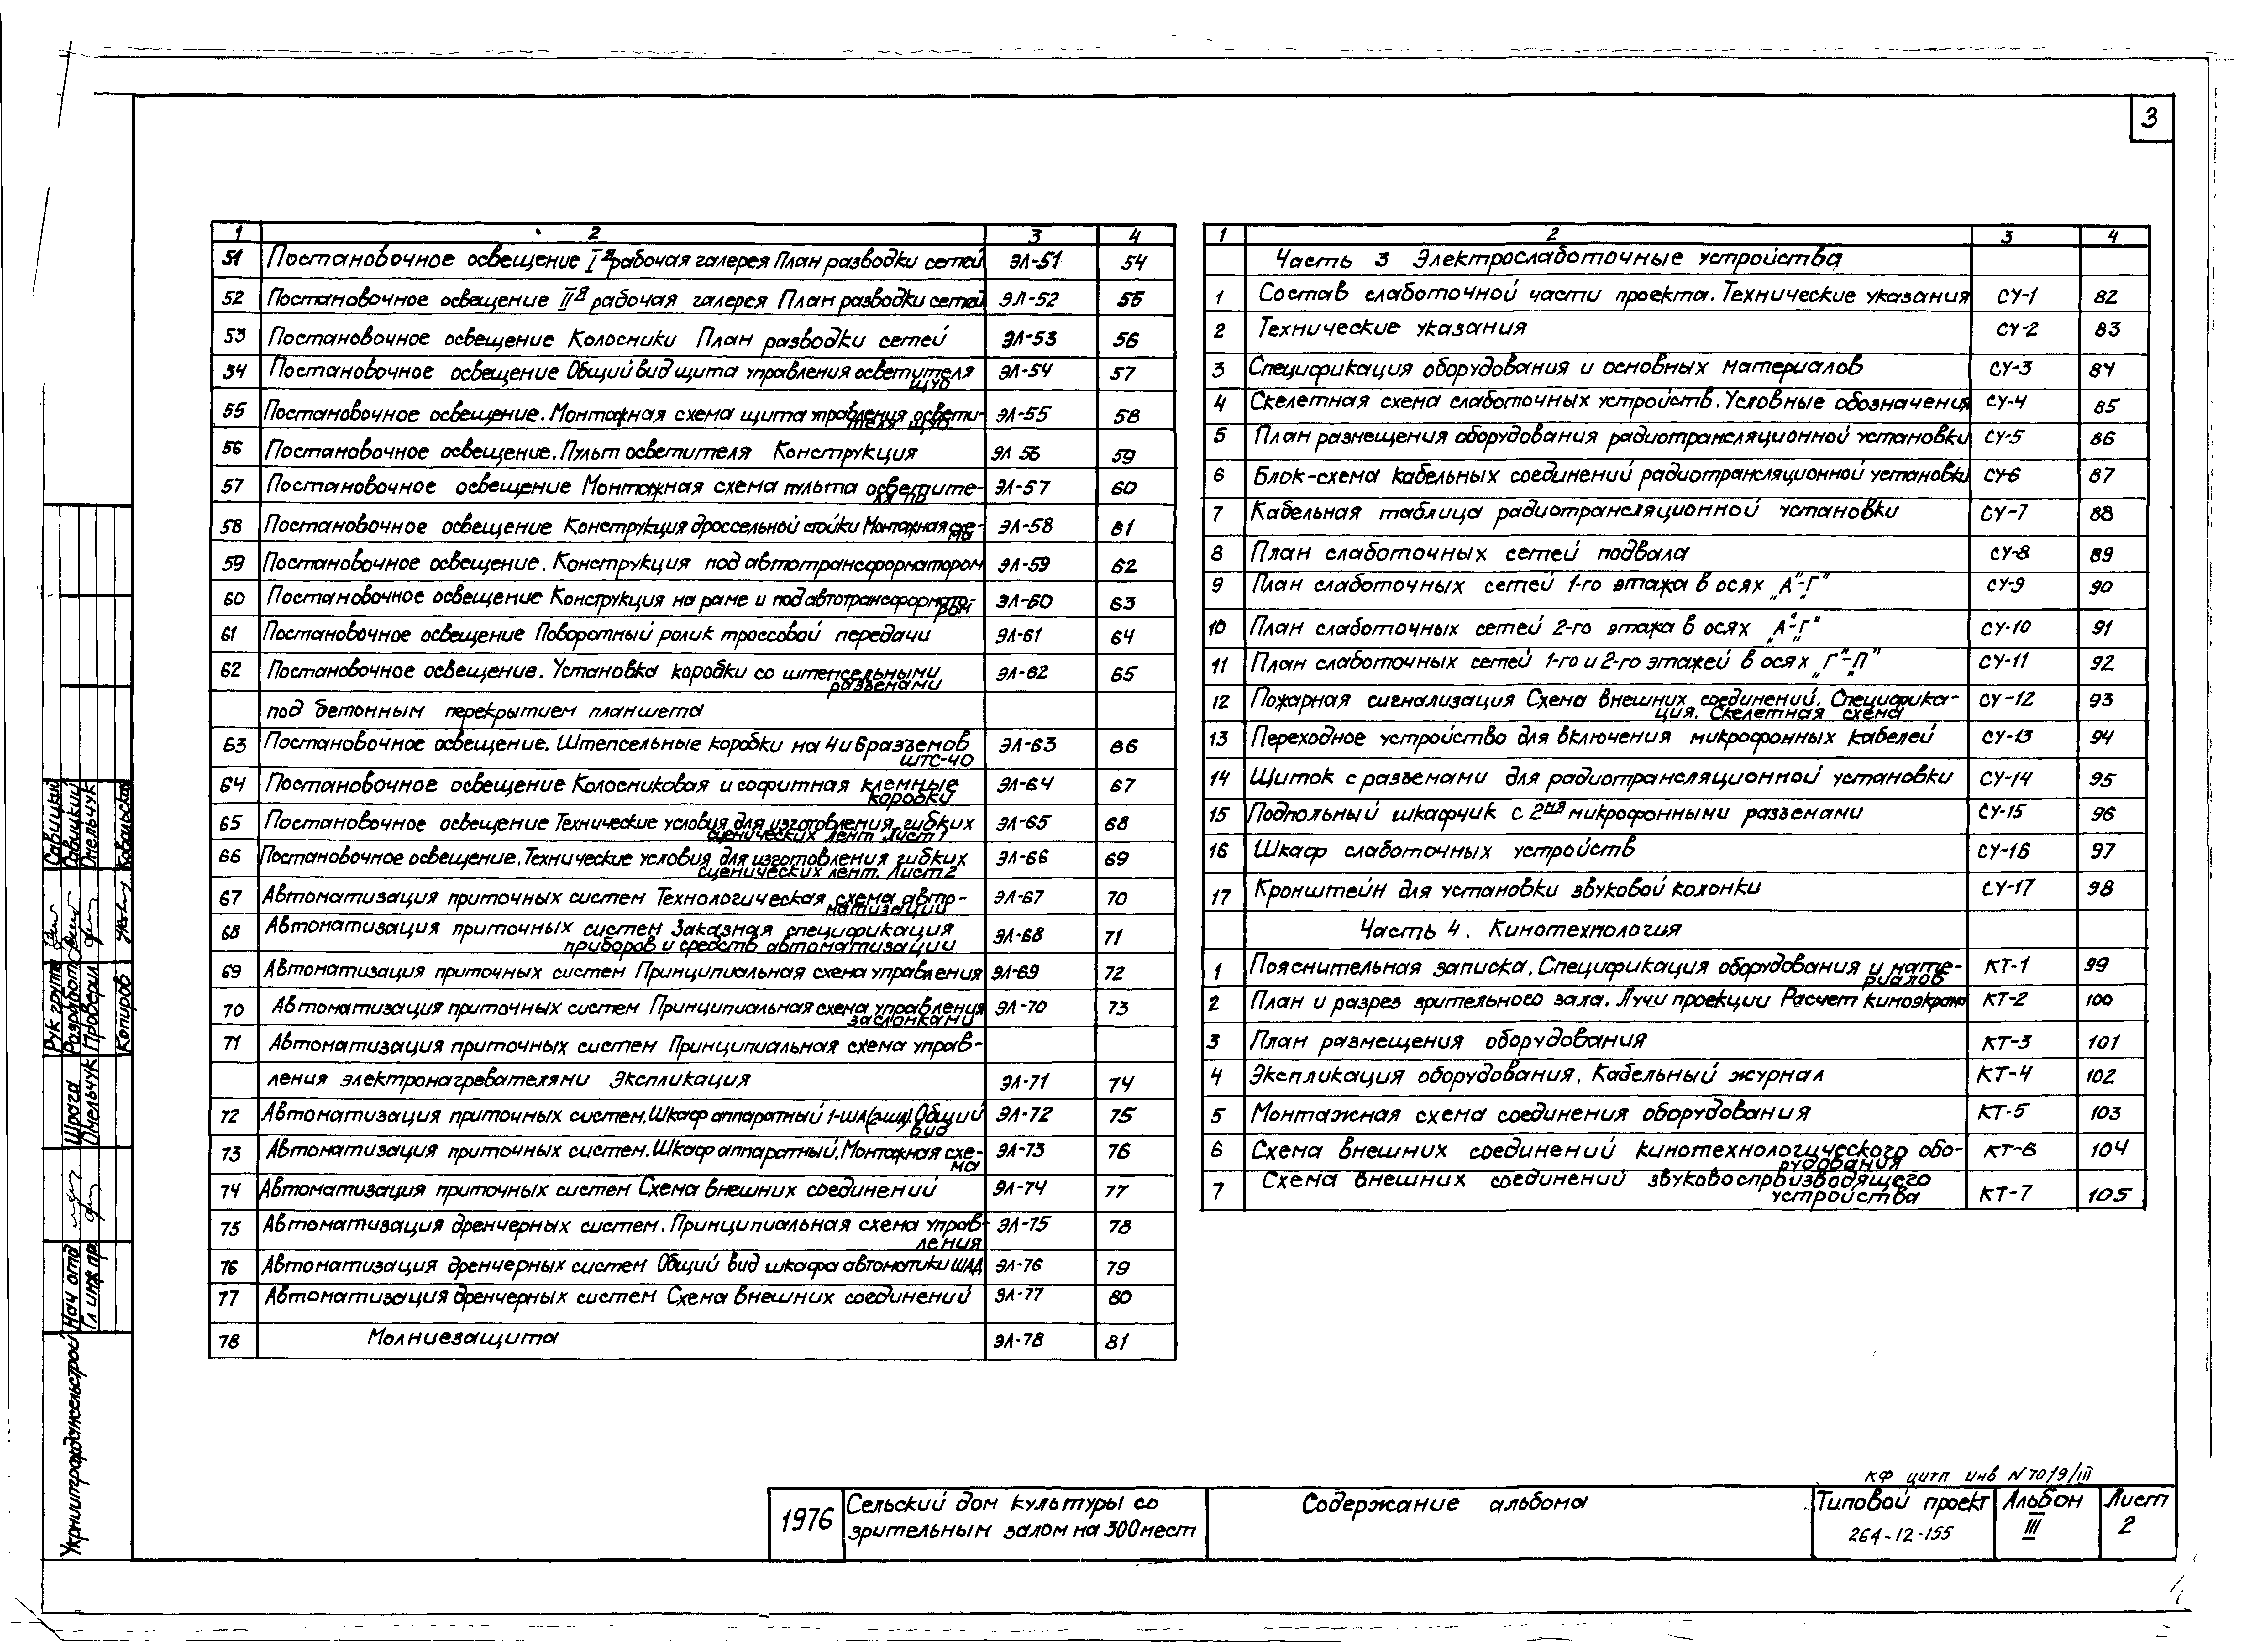 3
1 2 3 4
51 Постановочное освещение I я рабочая галерея План разводки сетей ЭЛ-51 54
52 Постановочное освещение II я рабочая галерея План разводки сетей ЭЛ-52 55
53 Постановочное освещение Колосники План разводки сетей ЭЛ-53 56
54 Постановочное освещение Общий вид щита управления осветителя ЭЛ-54 57
ЩУО
55 Постановочное освещение. Монтажная схема щита управления освети- ЭЛ-55 58
теля ЩУО
56 Постановочное освещение. Пульт осветителя Конструкция ЭЛ 56 59
57 Постановочное освещение Монтажная схема пульта осветите- ЭЛ-57 60
ля ПО
58 Постановочное освещение Конструкция дроссельной стойки Монтажная схе- ЭЛ-58 61
ма
59 Постановочное освещение. Конструкция под автотрансформатором ЭЛ-59 62
60 Постановочное освещение Конструкция на раме и под автотрансформато- ЭЛ-60 63
ром
61 Постановочное освещение Поворотный ролик троссовой передачи ЭЛ-61 64
62 Постановочное освещение. Установка коробки со штепсельными ЭЛ-62 65
разъемами
под бетонным перекрытием планшета
63 Постановочное освещение. Штепсельные коробки на 4 и 6 разъемов ЭЛ-63 66
ШТС-40
64 Постановочное освещение Колосниковая и софитная клемные ЭЛ-64 67
коробки
65 Постановочное освещение Технические условия для изготовления гибких ЭЛ-65 68
сценических лент Лист 1
66 Постановочное освещение. Технические условия для изготовления гибких ЭЛ-66 69
сценических лент. Лист 2
67 Автоматизация приточных систем Технологическая схема авто- ЭЛ-67 70
матизации
68 Автоматизация приточных систем Заказная спецификация ЭЛ-68 71
приборов и средств автоматизации
69 Автоматизация приточных систем Принципиальная схема управления ЭЛ-69 72
70 Автоматизация приточных систем Принципиальная схема управления ЭЛ-70 73
заслонками
71 Автоматизация приточных систем Принципиальная схема управ-
ления электронагревателями Экспликация ЭЛ-71 74
72 Автоматизация приточных систем. Шкаф аппаратный 1-ША (2-ША). Общий ЭЛ-72 75
вид
73 Автоматизация приточных систем. Шкаф аппаратный. Монтажная схе- ЭЛ-73 76
ма
74 Автоматизация приточных систем Схема внешних соединений ЭЛ-74 77
75 Автоматизация дренчерных систем. Принципиальная схема управ- ЭЛ-75 78
ления
76 Автоматизация дренчерных систем Общий вид шкафа автоматики ШАД ЭЛ-76 79
77 Автоматизация дренчерных систем Схема внешних соединений ЭЛ-77 80
78 Молниезащита ЭЛ-78 81
1 2 3 4
Часть 3 Электрослаботочные устройства
1 Состав слаботочной части проекта. Технические указания СУ-1 82
2 Технические указания СУ-2 83
3 Спецификация оборудования и основных материалов СУ-3 84
4 Скелетная схема слаботочных устройств. Условные обозначения СУ-4 85
5 План размещения оборудования радиотрансляционной установки СУ-5 86
6 Блок-схема кабельных соединений радиотрансляционной установки СУ-6 87
7 Кабельная таблица радиотрансляционной установки СУ-7 88
8 План слаботочных сетей подвала СУ-8 89
9 План слаботочных сетей 1-го этажа в осях „А"-„Г" СУ-9 90
10 План слаботочных сетей 2-го этажа в осях „А"-„Г" СУ-10 91
11 План слаботочных сетей 1-го и 2-го этажей в осях „Г"-„П" СУ-11 92
12 Пожарная сигнализация Схема внешних соединений. Специфика- СУ-12 93
ция. Скелетная схема
13 Переходное устройство для включения микрофонных кабелей СУ-13 94
14 Щиток с разъемами для радиотрансляционной установки СУ-14 95
15 Подпольный шкафчик с 2мя микрофонными разъемами СУ-15 96
16 Шкаф слаботочных устройств СУ-16 97
17 Кронштейн для установки звуковой колонки СУ-17 98
Часть 4. Кинотехнология
1 Пояснительная записка. Спецификация оборудования и мате- КТ-1 99
риалов
2 План и разрез зрительного зала. Лучи проекции Расчет киноэкрана КТ-2 100
3 План размещения оборудования КТ-3 101
4 Экспликация оборудования. Кабельный журнал КТ-4 102
5 Монтажная схема соединения оборудования КТ-5 103
6 Схема внешних соединений кинотехнологического обо- КТ-6 104
рудования
7 Схема внешних соединений звуковоспроизводящего КТ-7 105
устройства
КФ ЦИТП ИНВ N 7019/III
1976
Сельский дом культуры со
зрительным залом на 300 мест
Содержание альбома
Типовой проект
264-12-155
Альбом
III
Лист
2
Укрниипграждансельстрой
Нач отд Шрага
Гл инж пр. Омельчук
Рук группы Савицкий
Разработ Савицкий
Проверил Омельчук
Копиров Ковальская